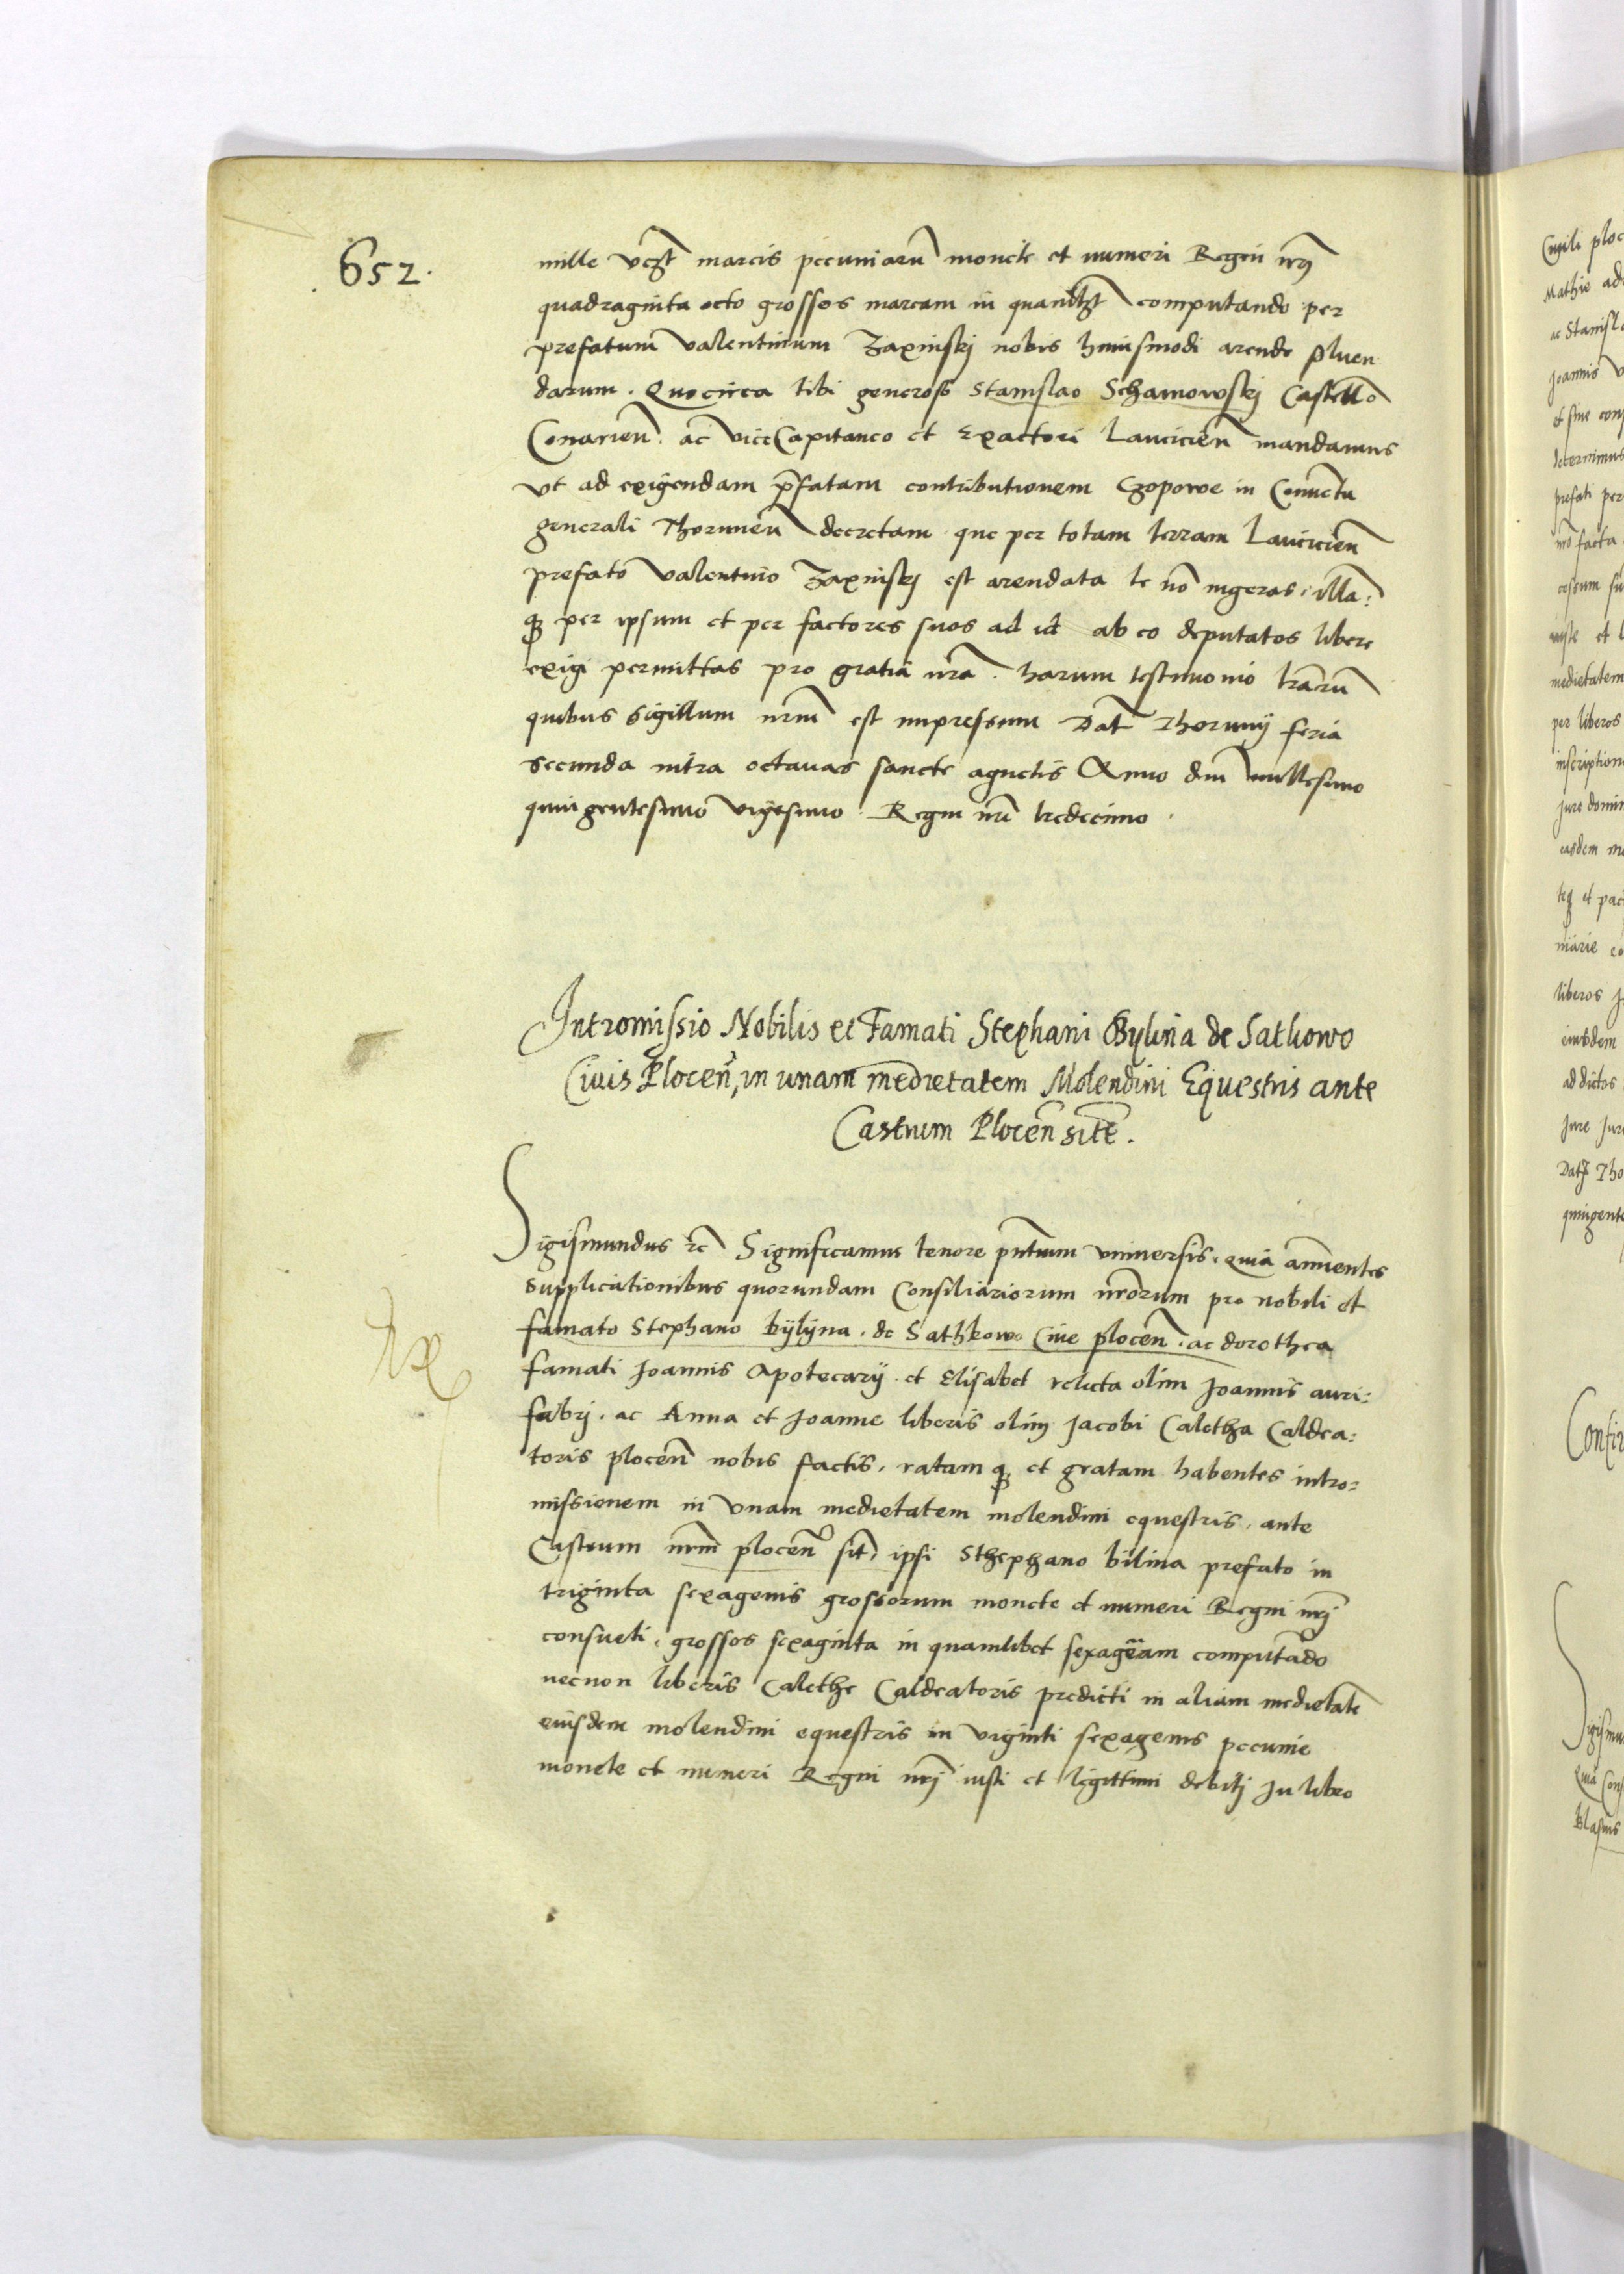 652.
mille vcȝt marcis pecuniarū monete et numeri Regni nrj
quadraginta octo grossos marcam in quamlȝt computando per
prefatum Valentinum Zaxinskj nobis huiusmodi arende soluen
darum. Quocirca tibi generoso Stanislao Schamowskj Castellō
Conarien̄. ac viceCapitaneo et Exactori Lancicien̄ mandamus
vt ad exigendam p̄fatam contributionem Czopowe in Conuentu
generali Thorunen̄ decretam que per totam terram Lancicien̄
prefato Valentino Zaxinskj est arendata te nō ingeras, illā:
qꝫ per ipsum et per factores suos ad id ab eo deputatos libere
exigi permittas pro gratia nrā. harum testimonio lrārū
quibus sigillum nrm̄ est impressum Dat̄ Thorunij feria
secunda intra octauas sancte agnetis Anno dnī millesimo
quingentesimo vigesimo. Regni nrī tredecimo.
Intromissio Nobilis et Famati Stephani Bylina de Sathowo
Ciuis Plocen̄, in unam medietatem Molendini Equestris ante
Castrum Plocen̄ sitē.
Sigismundus rc̄ Significamus tenore pn̄tium vniuersis. quia annuentes
supplicationibus quorundam Consiliariorum nrōrum pro nobili et
famato Stephano bylyna. de Sathkowo Ciue plocen̄. ac dorothea
famati Joannis Apotecarij. et Elisabet relicta olim Joannis auri:
fabrj. ac Anna et Joanne liberis olim Jacobi Caletha Caldea:
toris plocen̄ nobis factis, ratam qꝫ et gratam habentes intro:
missionem in vnam medietatem molendini equestris, ante
Castrum nrm̄ plocen̄ sit̄, ipsi Sthephano bilina prefato in
triginta sexagenis grossorum monete et numeri Regni nrj
consueti, grossos sexaginta in quamlibet sexagēam computādo
necnon liberis Calethe Caldeatoris predicti in aliam medietatē
eiusdem molendini equestris in viginti sexagenis pecunie
monete et numeri Regni nrj iusti et legittimi debitj In libro